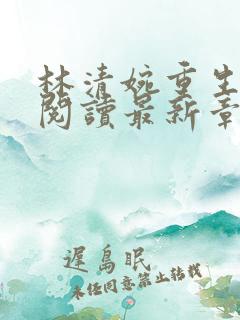 林清婉重生
閱讀最新章
遲島眠
未经同意禁止转载